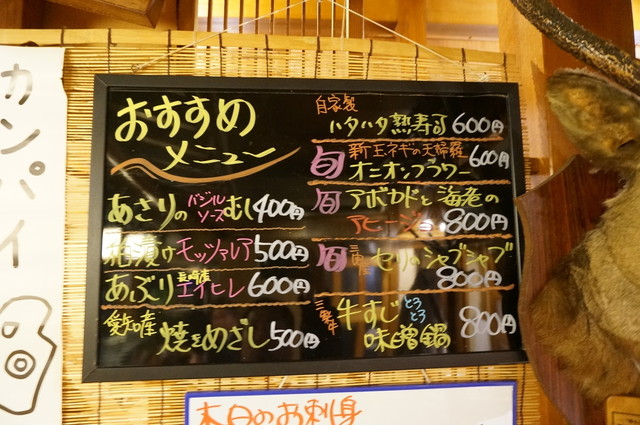 カンパイ
おすすめ
メニュー
あさりのバジルソースむし400円
粕漬けモッツァレア500円
あぶり長崎産エイヒレ600円
愛知産焼きめざし500円
自家製
ハタハタ熟寿司600円
旬新玉ネギの天婦羅600円
オニオンフラワー
旬アボカドと海老の
アヒージョ800円
旬セリのシャブシャブ
800円
牛すじとろとろ
味噌鍋800円
本日のお刺身